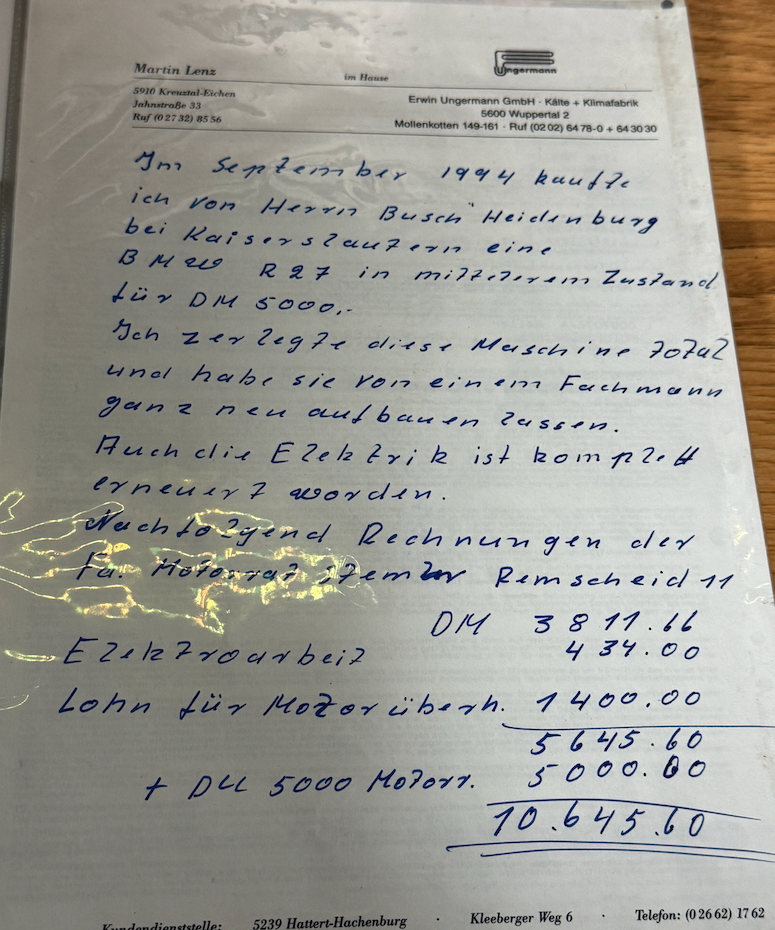 Martin Lenz
im Hause
Ungermann
5910 Kreuztal-Eichen
Jahnstraße 33
Ruf (0 27 32) 85 56
Erwin Ungermann GmbH · Kälte + Klimafabrik
5600 Wuppertal 2
Mollenkotten 149-161 · Ruf (02 02) 64 78-0 + 64 30 30
Im September 1994 kaufte
ich von Herrn Busch Heidenburg
bei Kaiserslautern eine
BMW R 27 in mittlerem Zustand
für DM 5000,-
Ich zerlegte diese Maschine total
und habe sie von einem Fachmann
ganz neu aufbauen lassen.
Auch die Elektrik ist komplett
erneuert worden.
Nachfolgend Rechnungen der
Fa. Motorrat Remscheid 11
DM 3811.66
Elektroarbeit 434.00
Lohn für Motorüberh. 1400.00
5645.60
+ DM 5000 Motorr. 5000.00
10.645.60
Kundendienststelle: 5239 Hattert-Hachenburg · Kleeberger Weg 6 · Telefon: (0 26 62) 17 62